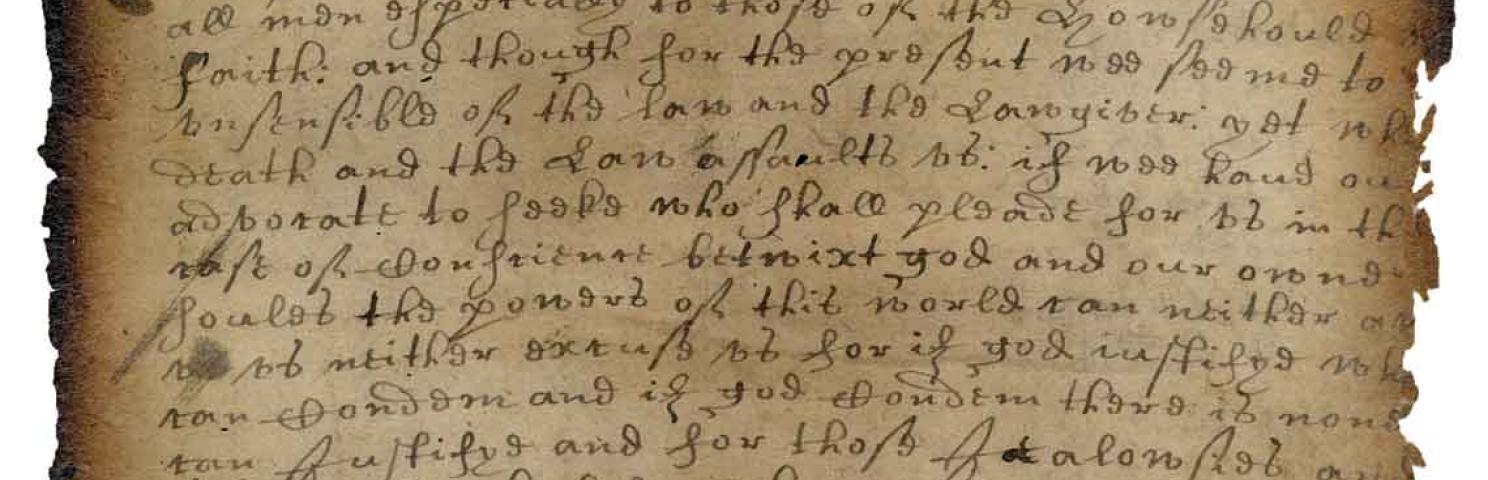 all men espetially to those of the Howsehould
faith: and though for the present wee seeme to
vnsensible of the law and the Lawgiver: yet
death and the Law assaults vs: if wee have
advocate to seeke who shall pleade for vs in
case of Conscience betwixt god and our owne
soules the powers of this world can neither
vs neither excuse vs for if god iustifye
can Condem and if god Condem there is none
can Justifye and for those Jealowsies